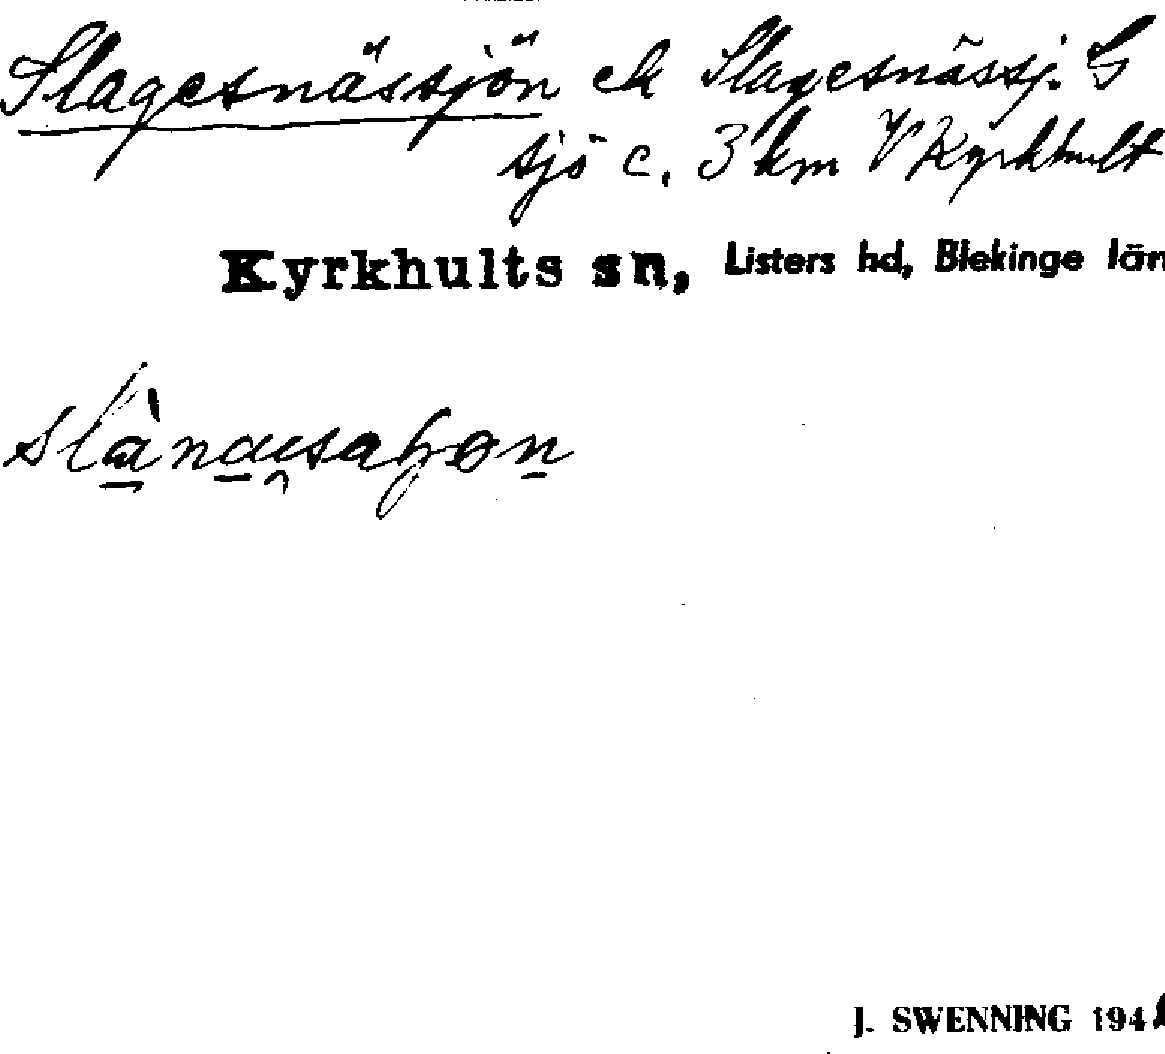 Slagesnässjön ek Slagesnässj. G
sjö c. 3 km V Kyrkhult
Kyrkhults sn, Listers hd, Blekinge län
J. SWENNING 194